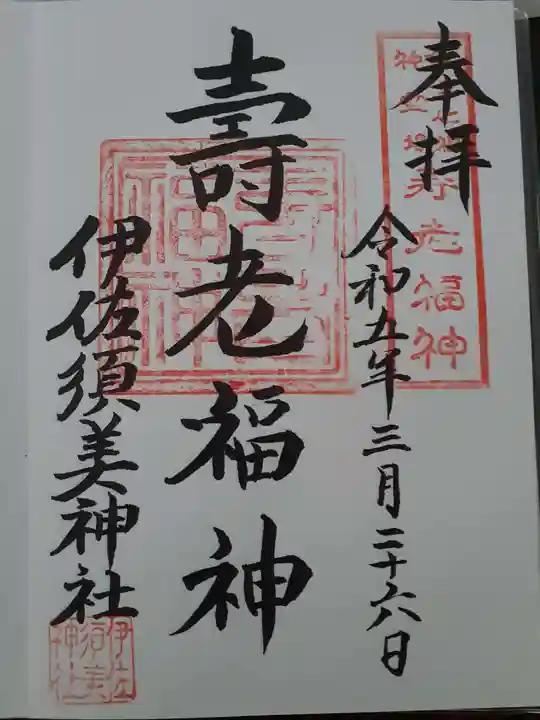 奉拝
令和五年三月二十六日
壽老福神
伊佐須美神社
寿老福神
伊佐須美神社